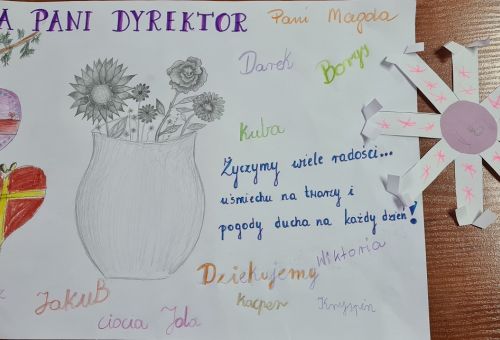 A PANI DYREKTOR
Pani Magda
Darek
Borys
Kuba
Życzymy wiele radości...
uśmiechu na twarzy i
pogody ducha na każdy dzień!
Wiktoria
Dziękujemy
Kacper
Kryspin
Jakub
ciocia Jola